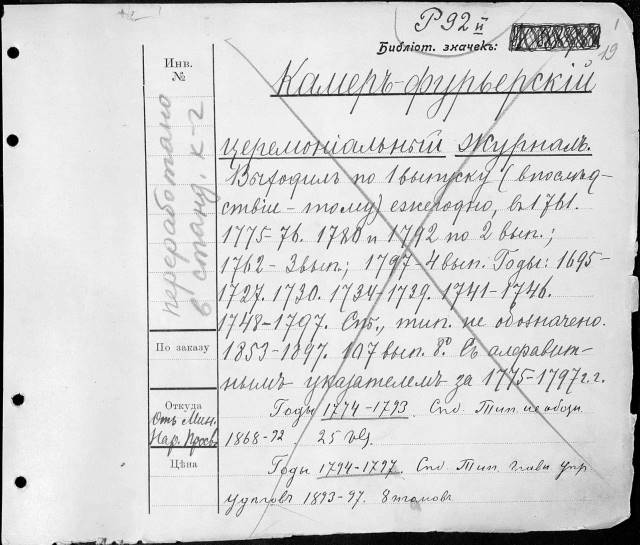 Р 92 й
Библіот. значекъ:
19
Инв.
№
Камеръ-фурьерскій
церемоніальный журналъ.
Выходилъ по 1 выпуску (впослѣд-
ствіи - тому) ежегодно, въ 1761.
1775-76. 1780 и 1792 по 2 вып.;
1762 - 3 вып.; 1797-4 вып. Годы: 1695-
1727. 1730. 1734, 1739. 1741-1746.
1748-1797. Спб., тип. не обозначено.
1853-1897. 107 вып. 8º. Съ алфавит-
нымъ указателемъ за 1775-1797 г.г.
Годы 1774-1793. Спб. Тип. не обозн.
1868-92 25
Годы 1794-1797. Спб. Тип. главн. упр.
удѣловъ 1893-97. 8 томовъ
переработано
в станд. к-г
По заказу
Откуда
Отъ Мин.
Нар. Просв.
Цѣна